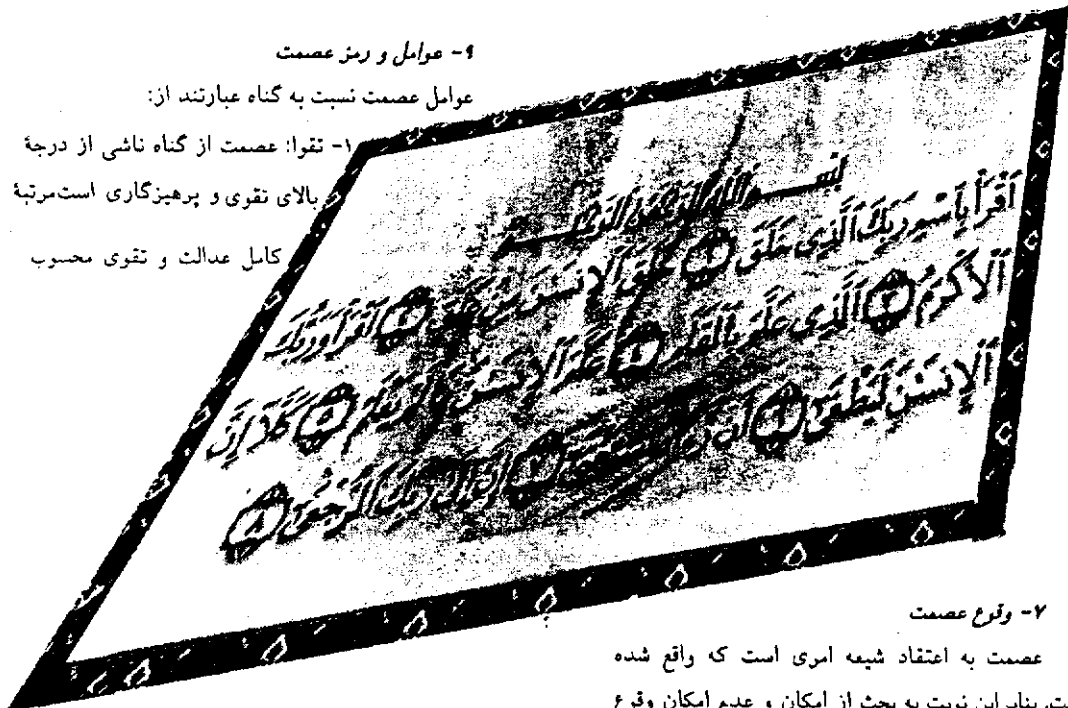 ۹- عوامل و رمز عصمت
عوامل عصمت نسبت به گناه عبارتند از:
۱- تقوا: عصمت از گناه ناشی از درجهٔ
بالای تقوی و پرهیزگاری است‌مرتبهٔ
کامل عدالت و تقوی محسوب
بِسْمِ اللَّهِ الرَّحْمَٰنِ الرَّحِيمِ
ٱقْرَأْ بِٱسْمِ رَبِّكَ ٱلَّذِى خَلَقَ ١ خَلَقَ ٱلْإِنسَٰنَ مِنْ عَلَقٍ ٢ ٱقْرَأْ وَرَبُّكَ
ٱلْأَكْرَمُ ٣ ٱلَّذِى عَلَّمَ بِٱلْقَلَمِ ٤ عَلَّمَ ٱلْإِنسَٰنَ مَا لَمْ يَعْلَمْ ٥ كَلَّآ إِنَّ
ٱلْإِنسَٰنَ لَيَطْغَىٰٓ ٦ أَن رَّءَاهُ ٱسْتَغْنَىٰٓ ٧ إِنَّ إِلَىٰ رَبِّكَ ٱلرُّجْعَىٰٓ ٨
۷- وقوع عصمت
عصمت به اعتقاد شیعه امری است که واقع شده
ت، بنابراین نوبت به بحث از امکان و عدم امکان وقوع